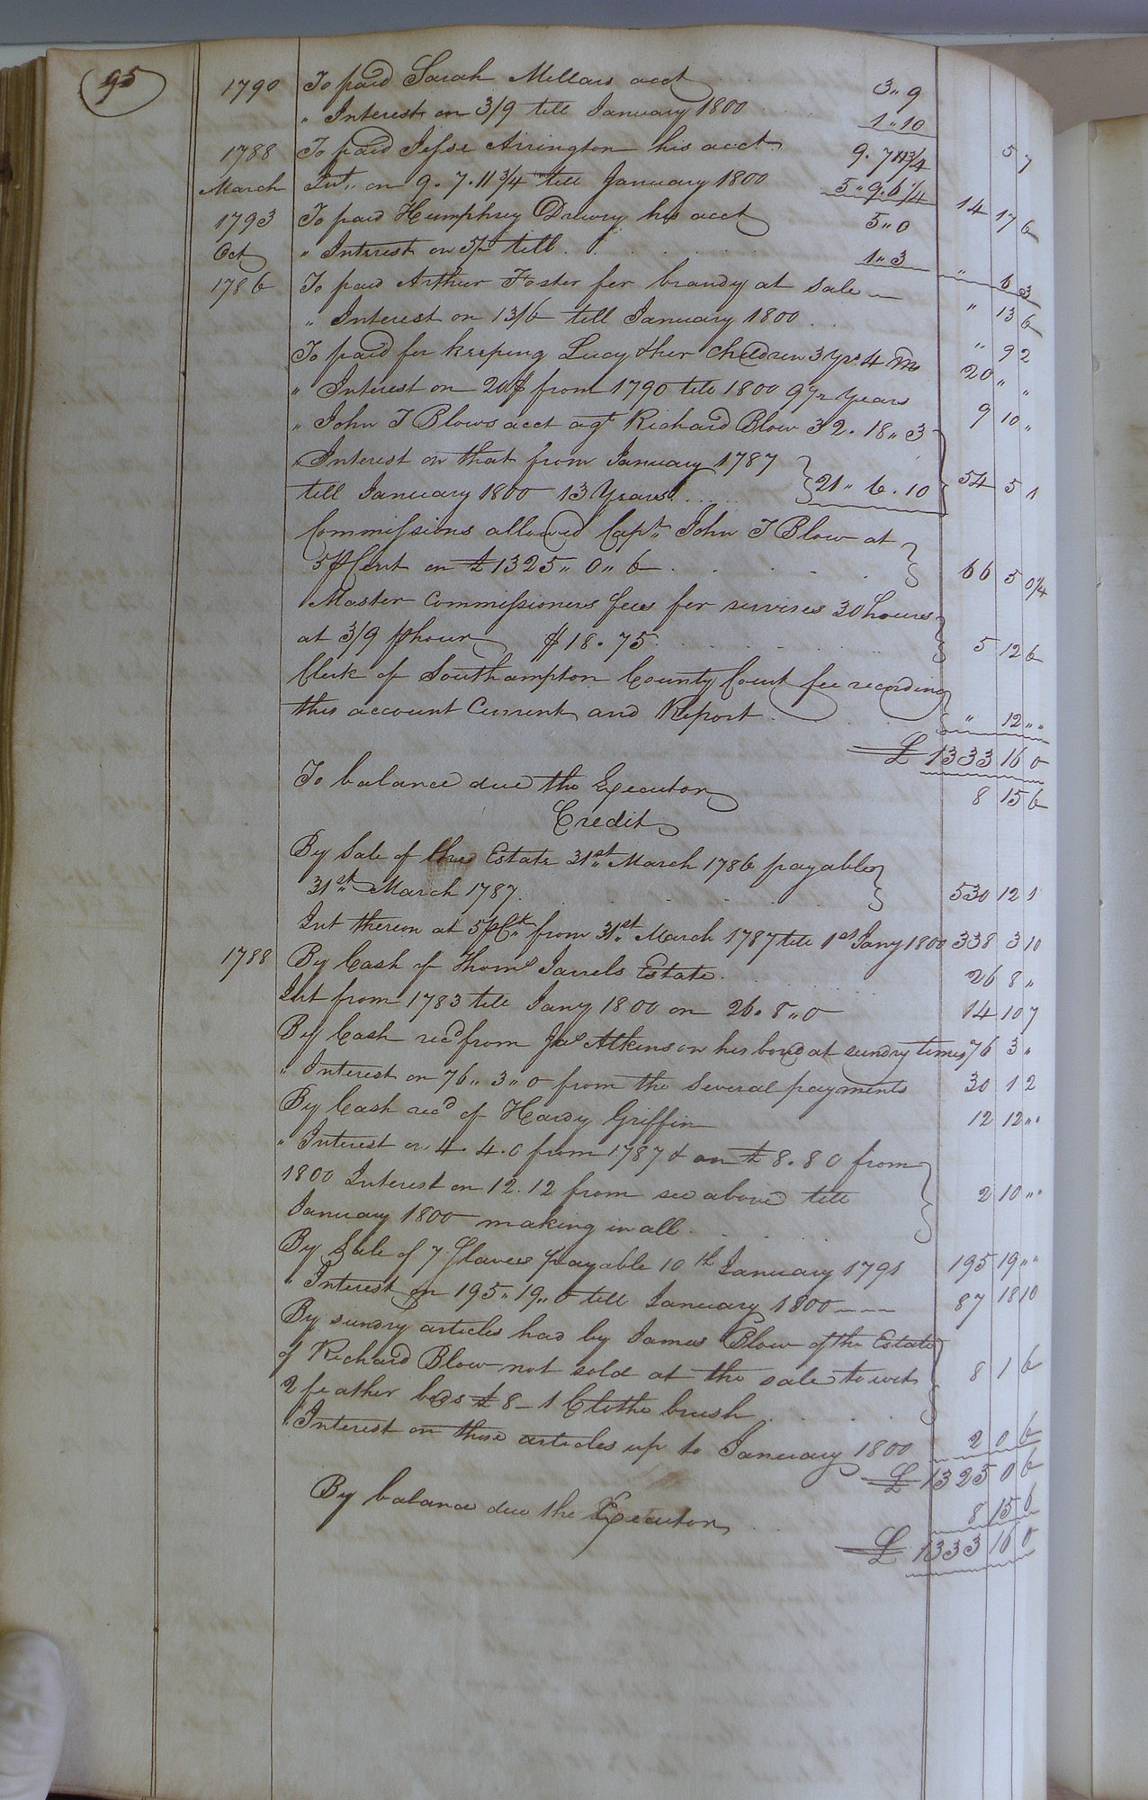 95
1790 To paid Sarah Millars acct 3,, 9
,, Interest on 3/9 till January 1800 1,, 10 5 7
1788 To paid Jesse Arrington his acct 9. 7 11 3/4
March Int,, on 9. 7. 11 3/4 till January 1800 5,, 9. 6 1/4 14 17 6
1793 To paid Humphrey Drewry his acct 5,, 0
Oct ,, Interest on 5/ till 1,, 3 ,, 6 3
1786 To paid Arthur Foster for brandy at Sale ,, 13 6
,, Interest on 13/6 till January 1800 ,, 9 2
To paid for keeping Lucy & her Children 3 Yrs. 4 Ms 20 ,, ,,
,, Interest on 20£ from 1790 till 1800 9 1/2 Years 9 10 ,,
,, John T Blows acct agt Richard Blow 32. 18,, 3
,, Interest on that from January 1787
till January 1800 13 Years 21,, 6. 10 54 5 1
Commissions allowed Capt. John T Blow at
5 ⅌ Cent on £ 1325,, 0,, 6 66 5 0 1/4
Master Commissioners fees for services 30 hours
at 3/9 ⅌ hour $18. 75 5 12 6
Clerk of Southampton County Court fee recording
this account Current and Report ,, 12 ,,
£ 1333 16 0
To balance due the Executor 8 15 6
Credit
By Sale of the Estate 31st March 1786 payable
31st March 1787 530 12 1
Int thereon at 5 ⅌ Ct from 31st March 1787 till 1st Jany 1800 338 3 10
1788 By Cash of Thoms Jarrels Estate 26 8 ,,
Int from 1783 till Jany 1800 on 26. 8,, 0 14 10 7
By Cash recd from Jas Atkins on his bond at sundry times 76 3 ,,
,, Interest on 76,, 3,, 0 from the several payments 30 1 2
By Cash recd of Hardy Griffin 12 12 ,,
,, Interest on 4. 4. 0 from 1787 & on £ 8. 8 0 from
1800 Interest on 12. 12 from see above till
January 1800 making in all 2 10 ,,
By Sale of 7 Slaves payable 10th January 1791 195 19 ,,
,, Interest on 195,, 19,, 0 till January 1800 87 18 10
By sundry articles had by James Blow of the Estate
of Richard Blow not sold at the sale to wit
2 feather beds £ 8 – 1 Clothe brush 8 1 6
,, Interest on those articles up to January 1800 2 0 6
£ 1325 0 6
By balance due the Executor 8 15 6
£ 1333 16 0